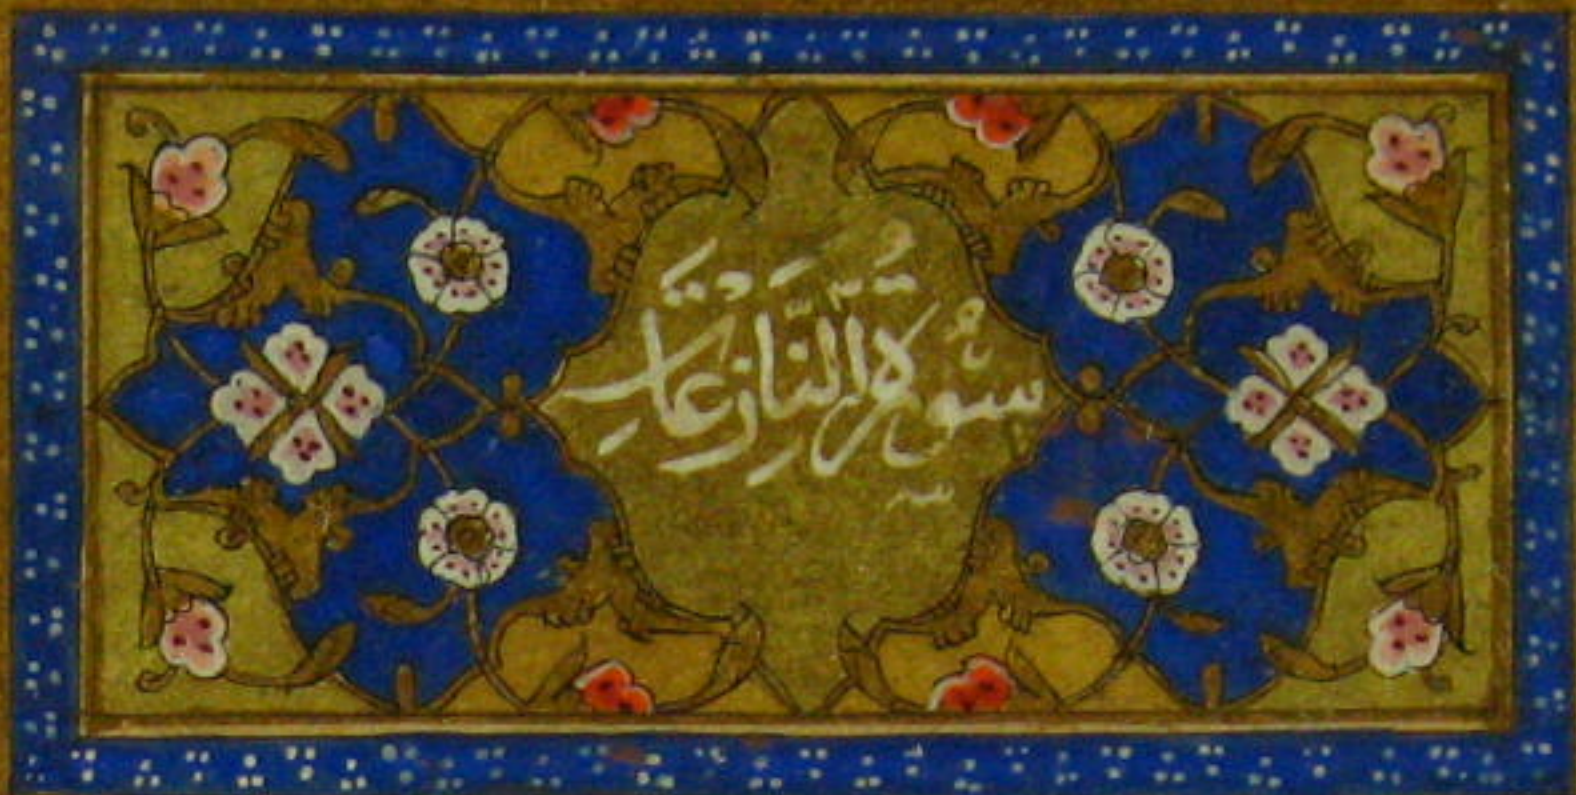 سُورَةُ النَّازِعَات